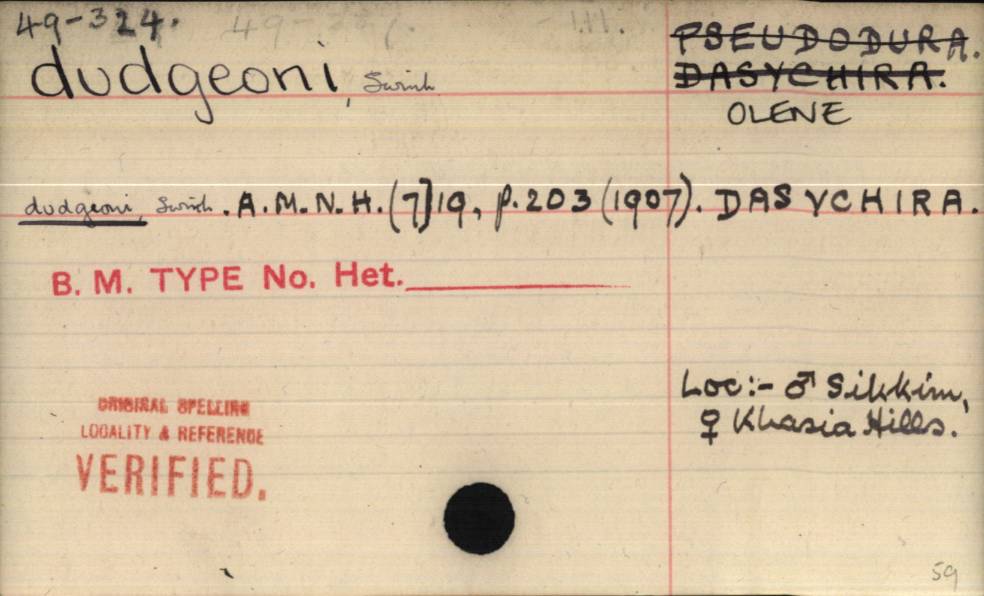 49-324.
dudgeoni, Swinh
PSEUDODURA.
DASYCHIRA.
OLENE
dudgeoni, Swinh. A.M.N.H. (7) 19, p. 203 (1907). DASYCHIRA.
B. M. TYPE No. Het.
Loc:- ♂ Sikkim,
♀ Khasia Hills.
ORIGINAL SPELLING
LOCALITY & REFERENCE
VERIFIED.
59